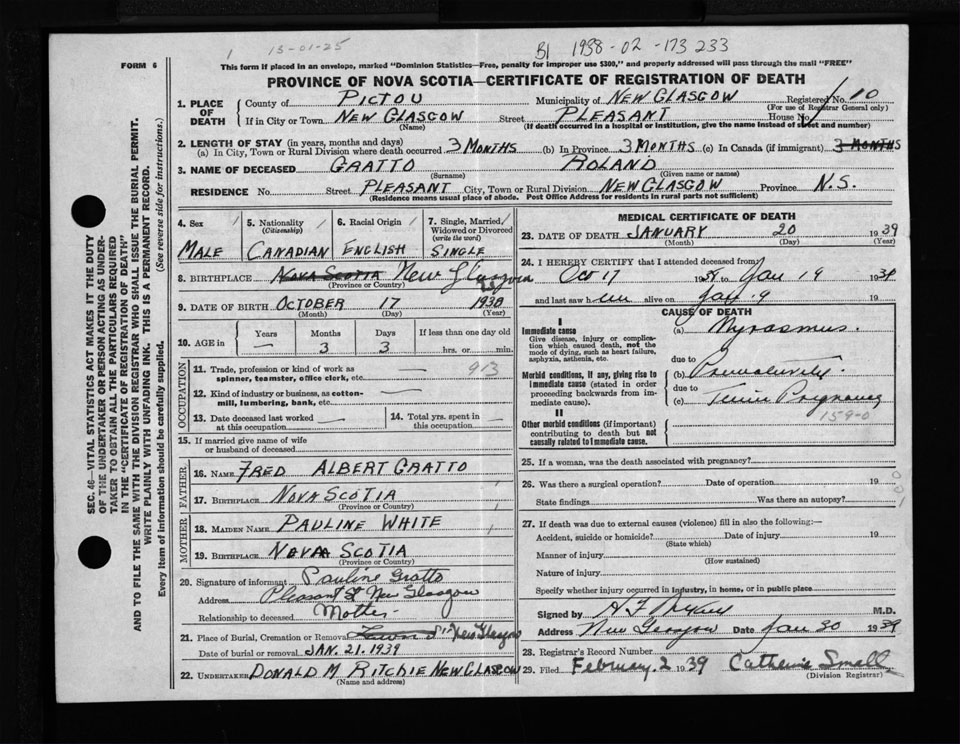 1 13-01-25 B1 1938-02-173 233
FORM 6
This form if placed in an envelope, marked "Dominion Statistics—Free, penalty for improper use $300," and properly addressed will pass through the mail "FREE"
PROVINCE OF NOVA SCOTIA—CERTIFICATE OF REGISTRATION OF DEATH
1. PLACE OF DEATH County of PICTOU Municipality of NEW GLASGOW Registered No. 10
(For use of Registrar General only)
If in City or Town NEW GLASGOW Street PLEASANT House No.
(Name) (If death occurred in a hospital or institution, give the name instead of street and number)
2. LENGTH OF STAY (in years, months and days)
(a) In City, Town or Rural Division where death occurred 3 MONTHS (b) In Province 3 MONTHS (c) In Canada (if immigrant) 3 MONTHS
3. NAME OF DECEASED GRATTO ROLAND
(Surname) (Given name or names)
RESIDENCE No. Street PLEASANT City, Town or Rural Division NEW GLASGOW Province N.S.
(Residence means usual place of abode. Post Office Address for residents in rural parts not sufficient)
4. Sex 5. Nationality (Citizenship) 6. Racial Origin 7. Single, Married, Widowed or Divorced (write the word)
MALE CANADIAN ENGLISH SINGLE
8. BIRTHPLACE NOVA SCOTIA New Glasgow
(Province or Country) N.S.
9. DATE OF BIRTH OCTOBER 17 1938
(Month) (Day) (Year)
10. AGE in Years Months Days If less than one day old
— 3 3 hrs. or min.
OCCUPATION
11. Trade, profession or kind of work as spinner, teamster, office clerk, etc. — 913
12. Kind of industry or business, as cotton-mill, lumbering, bank, etc. —
13. Date deceased last worked at this occupation — 14. Total yrs. spent in this occupation —
15. If married give name of wife or husband of deceased
FATHER
16. NAME FRED ALBERT GRATTO
17. BIRTHPLACE NOVA SCOTIA
(Province or Country)
MOTHER
18. MAIDEN NAME PAULINE WHITE
19. BIRTHPLACE NOVA SCOTIA
(Province or Country)
20. Signature of informant Pauline Gratto
Address Pleasant St New Glasgow
Relationship to deceased Mother
21. Place of Burial, Cremation or Removal New Glasgow
Date of burial or removal JAN. 21. 1939
22. UNDERTAKER DONALD M RITCHIE NEW GLASGOW
(Name and address)
MEDICAL CERTIFICATE OF DEATH
23. DATE OF DEATH JANUARY 20 1939
(Month) (Day) (Year)
24. I HEREBY CERTIFY that I attended deceased from
Oct 17 1938 to Jan 19 1939
and last saw him alive on Jan. 9 19
CAUSE OF DEATH
I
Immediate cause (a)
Give disease, injury or complication which caused death, not the mode of dying, such as heart failure, asphyxia, asthenia, etc.
due to
Morbid conditions, if any, giving rise to immediate cause (stated in order proceeding backwards from immediate cause). (b) Prematurity.
due to
(c) Pregnancy
159-0
II
Other morbid conditions (if important) contributing to death but not causally related to immediate cause.
25. If a woman, was the death associated with pregnancy?
26. Was there a surgical operation? Date of operation 19
State findings Was there an autopsy?
27. If death was due to external causes (violence) fill in also the following:—
Accident, suicide or homicide? Date of injury 19
(State which)
Manner of injury
(How sustained)
Nature of injury
Specify whether injury occurred in industry, in home, or in public place
Signed by M.D.
Address New Glasgow Date Jan 20 1939
28. Registrar's Record Number
29. Filed February. 2 1939 Catherine Small
(Division Registrar)
SEC. 46—VITAL STATISTICS ACT MAKES IT THE DUTY
OF THE UNDERTAKER OR PERSON ACTING AS UNDER-
TAKER TO OBTAIN ALL THE PARTICULARS REQUIRED
IN THE "CERTIFICATE OF REGISTRATION OF DEATH"
AND TO FILE THE SAME WITH THE DIVISION REGISTRAR WHO SHALL ISSUE THE BURIAL PERMIT.
WRITE PLAINLY WITH UNFADING INK. THIS IS A PERMANENT RECORD.
Every item of information should be carefully supplied. (See reverse side for instructions.)